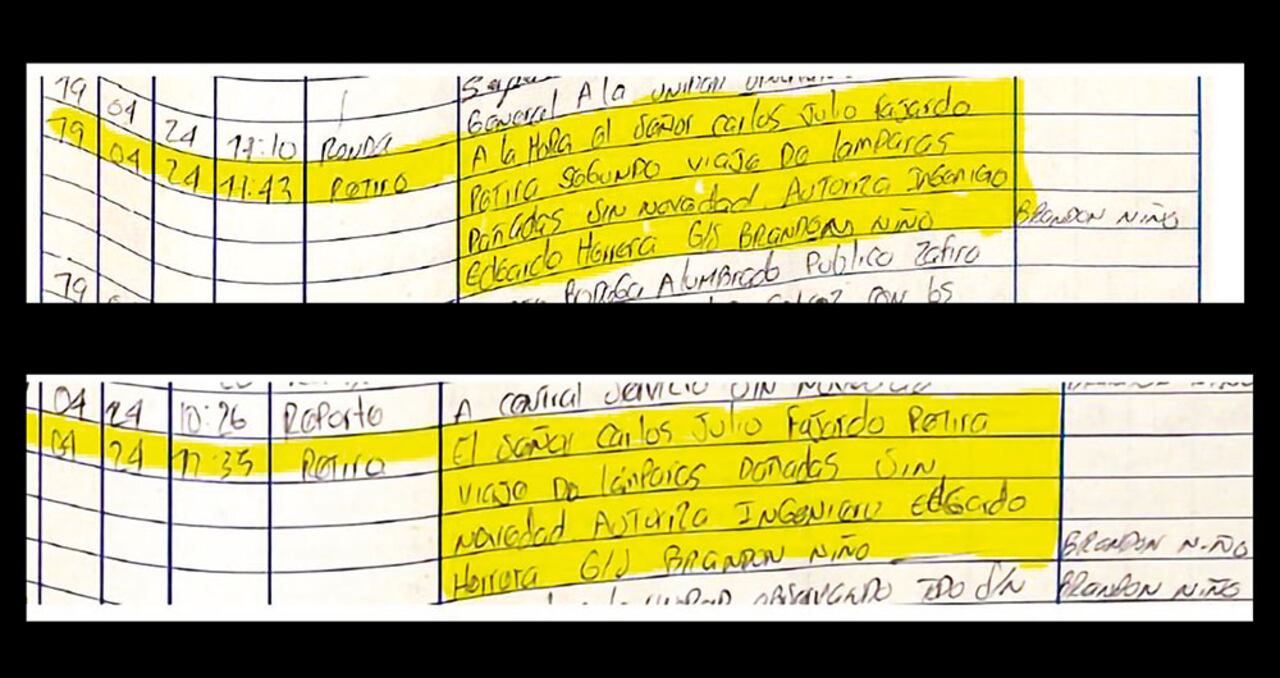 19 04 24 11:10 RONDA General A la unidad
19 04 24 11:43 Retiro A la Hora el Señor Carlos Julio Fajardo
Retira Segundo viaje De lamparas
Dañadas Sin novedad. Autoriza Ingeniero
Edgardo Herrera G/S BRANDON NIÑO BRANDON NIÑO
Bodega Alumbrado Publico Zafiro
19
con los
04 24 10:26 Reporte A central Servicio Sin novedad
04 24 11:35 Retiro El Señor Carlos Julio Fajardo Retira
viaje De lámparas Dañadas Sin
novedad. Autoriza Ingeniero Edgardo
Herrera G/S BRANDON NIÑO BRANDON NIÑO
observando TODO S/N BRANDON NIÑO